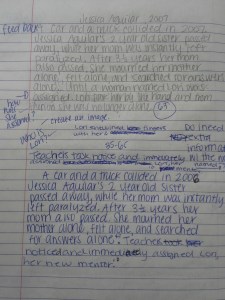 Jessica Aguilar 2007
Feed Back: A car and a truck collided in 2002
Jessica Aguilar's 2 year old sister passed
away, while her mom was instantly left
paralyzed. After 3½ years her mom
also passed. She mourned her mother
alone, felt alone and searched for answers
alone. Until a woman named Lori was
assigned to take her by the hand and
how
was
she
assigned?
create an image
Who is
Lori?
be need
extra
informa
85-65
Teacher took notice and immediately
A car and a truck collided in 2002
Jessica Aguilar's 2 year old sister
passed away, while her mom was instantly
left paralyzed. After 3½ years her
mom also passed. She mourned her
mother alone, felt alone, and searched
for answers alone. Teacher took
notice and immediately assigned Lori,
her new mentor.